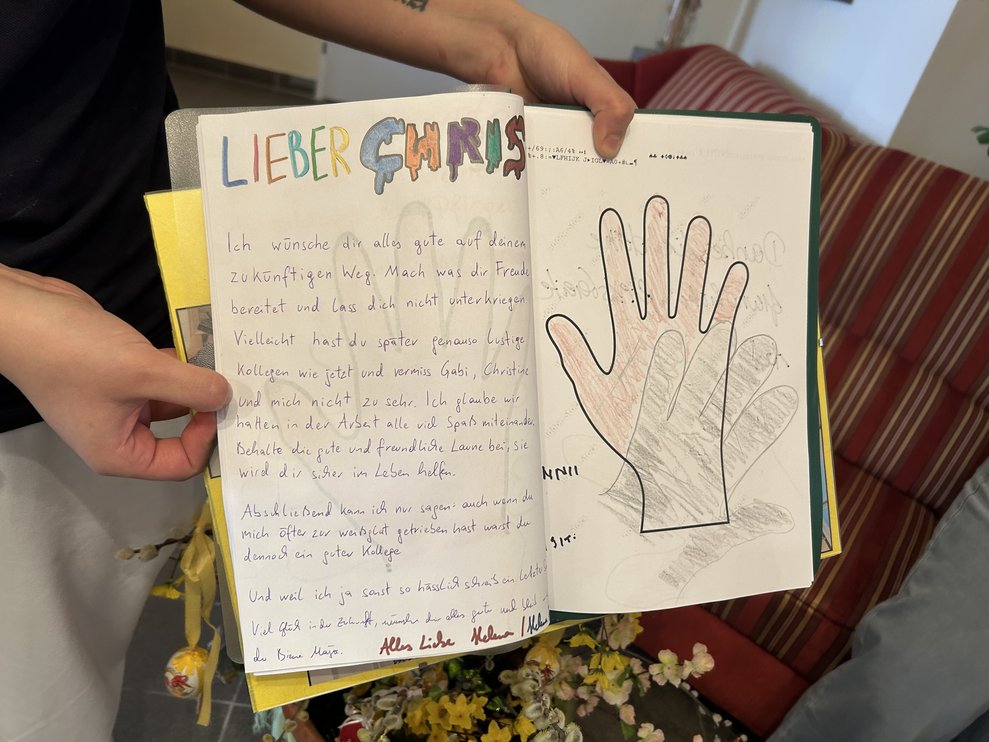 LIEBER CHRIS
Ich wünsche dir alles gute auf deinem
zukünftigen Weg. Mach was dir Freude
bereitet und lass dich nicht unterkriegen.
Vielleicht hast du später genauso lustige
Kollegen wie jetzt und vermiss Gabi, Christine
und mich nicht zu sehr. Ich glaube wir
hatten in der Arbeit alle viel Spaß miteinander.
Behalte die gute und freundliche Laune bei, sie
wird dir sicher im Leben helfen.
Abschließend kann ich nur sagen: auch wenn du
mich öfter zur weißglut getrieben hast warst du
dennoch ein guter Kollege
Und weil ich ja sonst so hässlich schreib ein
Viel Glück in der Zukunft, wünsche dir alles gute und
die Biene Maja.
Alles Liebe Helena
NNII